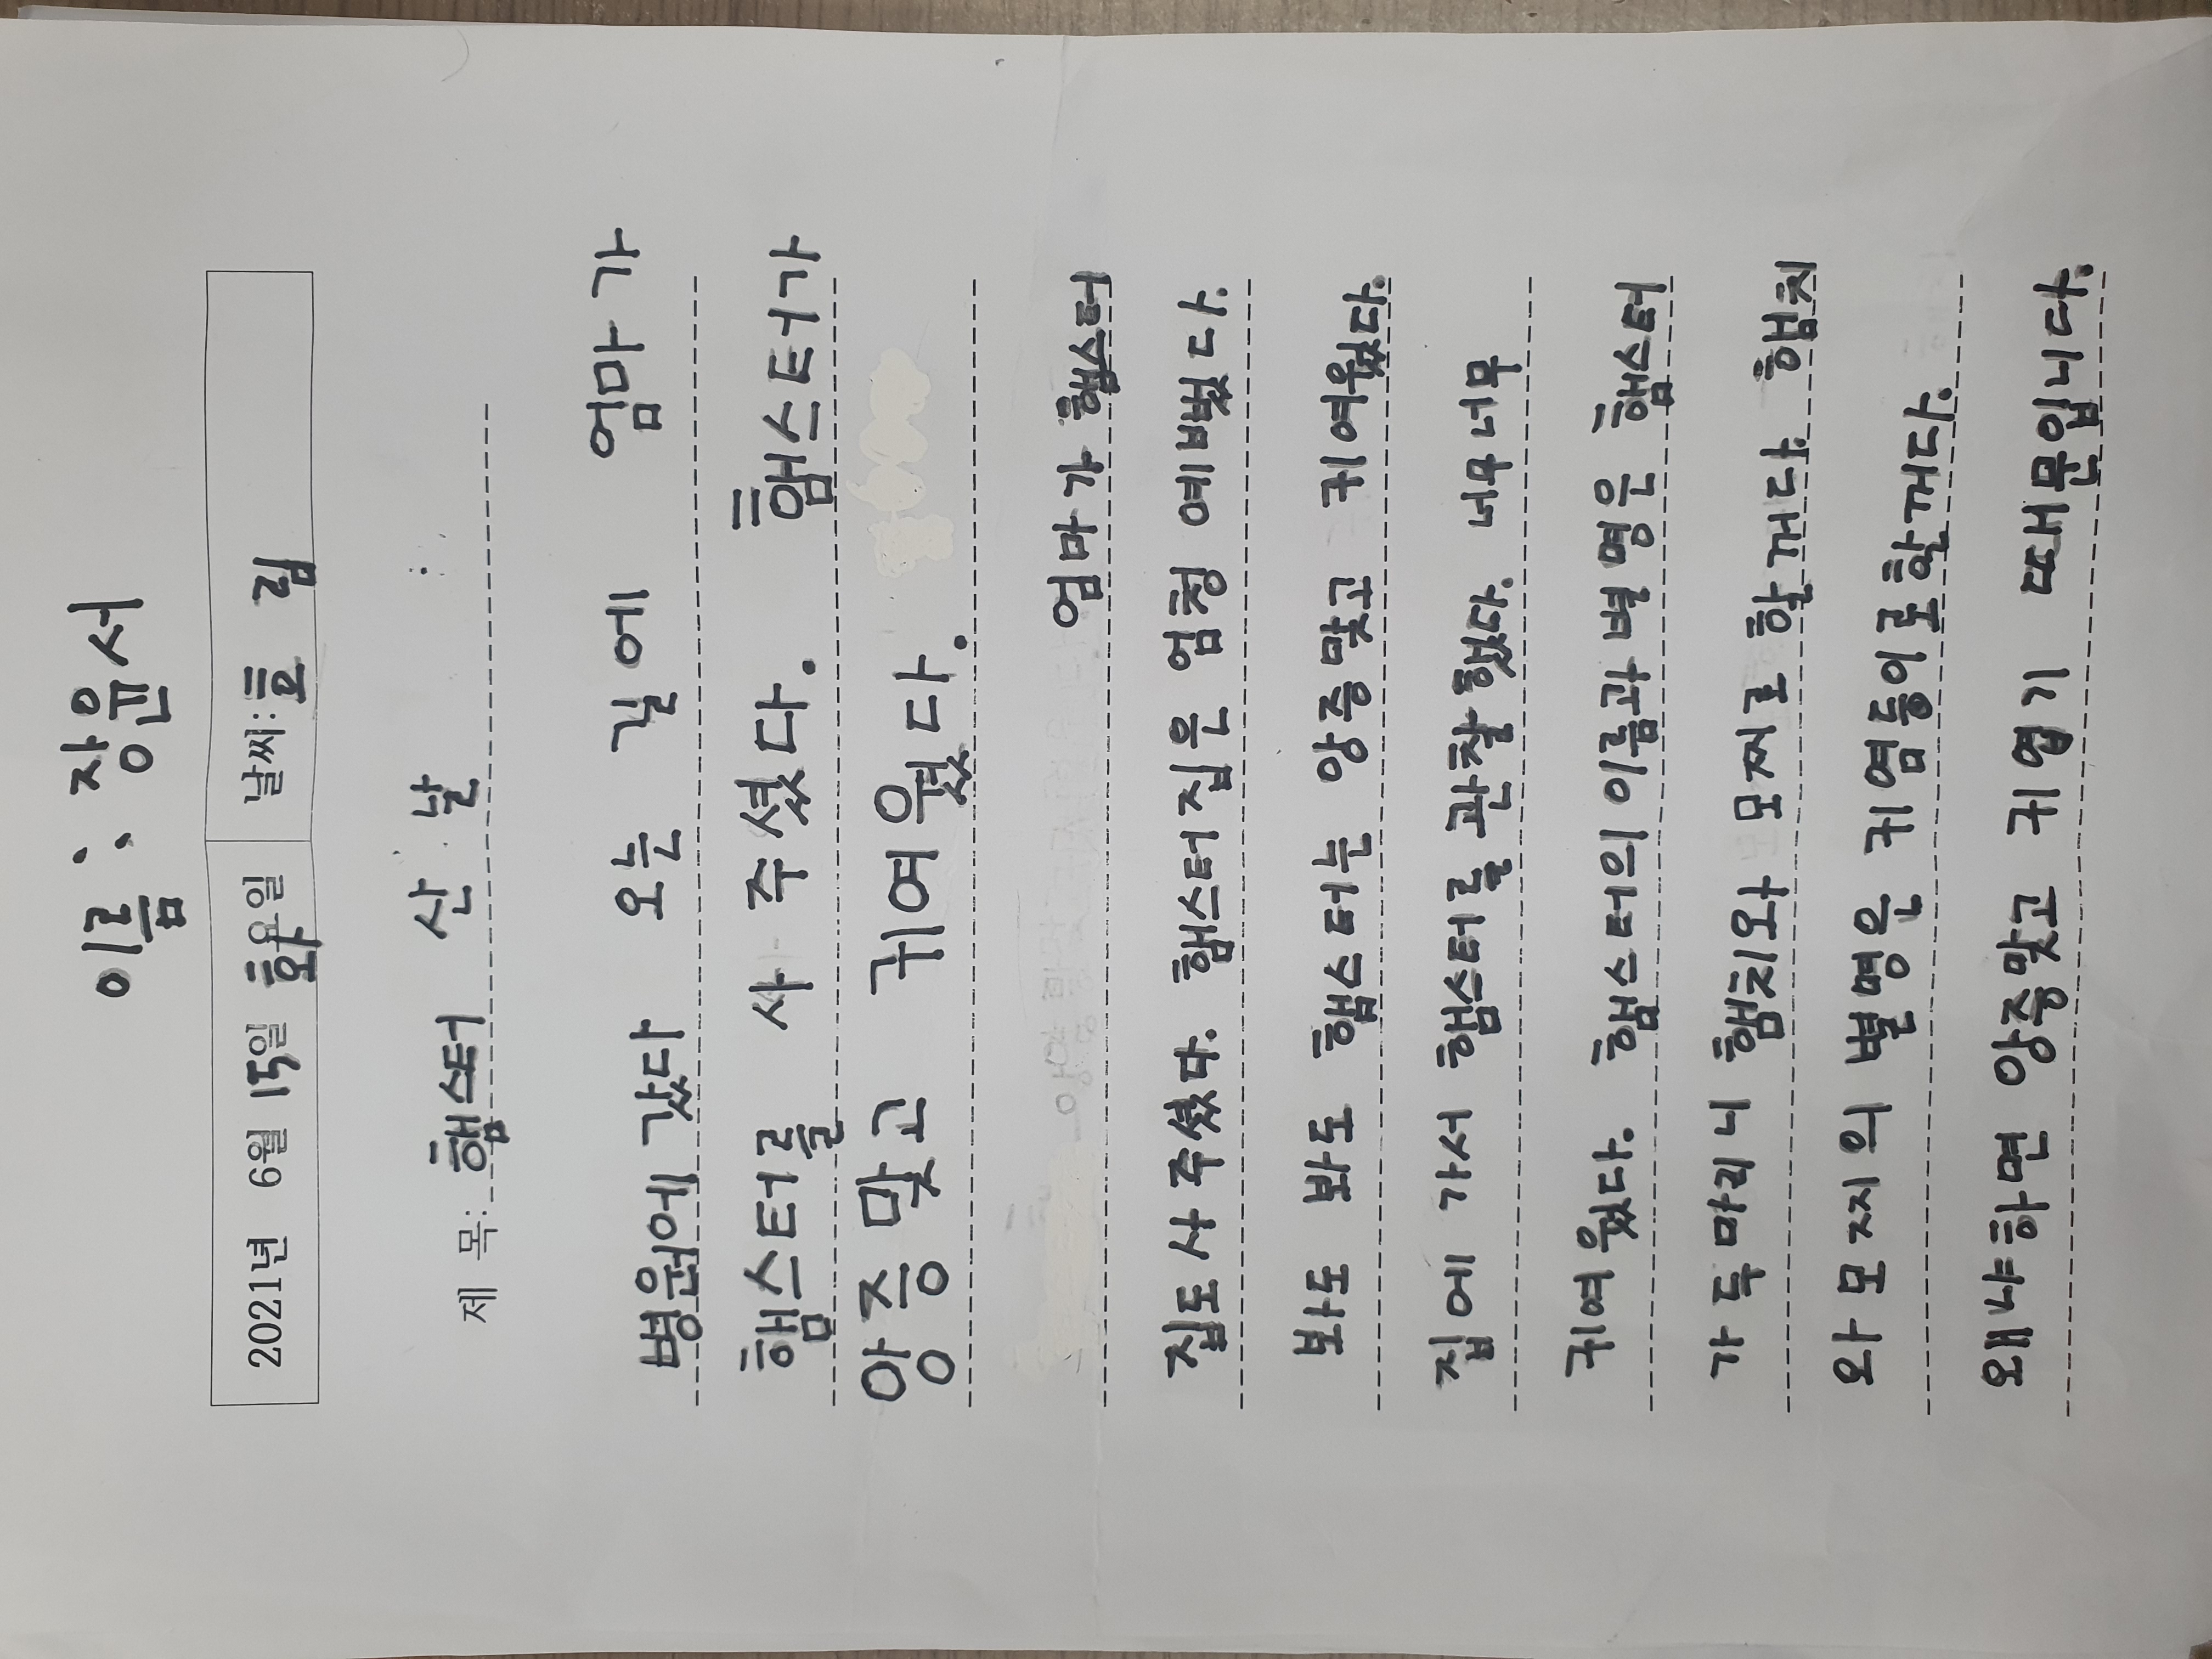 이름 : 장윤서
2021년 6월 15일 화요일 날씨: 흐림
제 목: 햄스터 산 날
병원에 갔다 오는 길에 엄마가
햄스터를 사 주셨다. 햄스터가
앙증맞고 귀여웠다.
엄마가 햄스터
집도 사 주셨다. 햄스터집은 엄청 예뻤다.
봐도 봐도 햄스터는 앙증맞고 귀여웠다.
집에 가서 햄스터를 관찰했다. 너무너무
귀여웠다. 햄스터의 이름과 별명은 햄스터
가 두마리니 햄치와 모찌로 할꺼다. 햄치
와 모찌의 별명은 귀염둥이로할꺼다.
왜냐하면 앙증맞고 귀엽기 때문입니다.